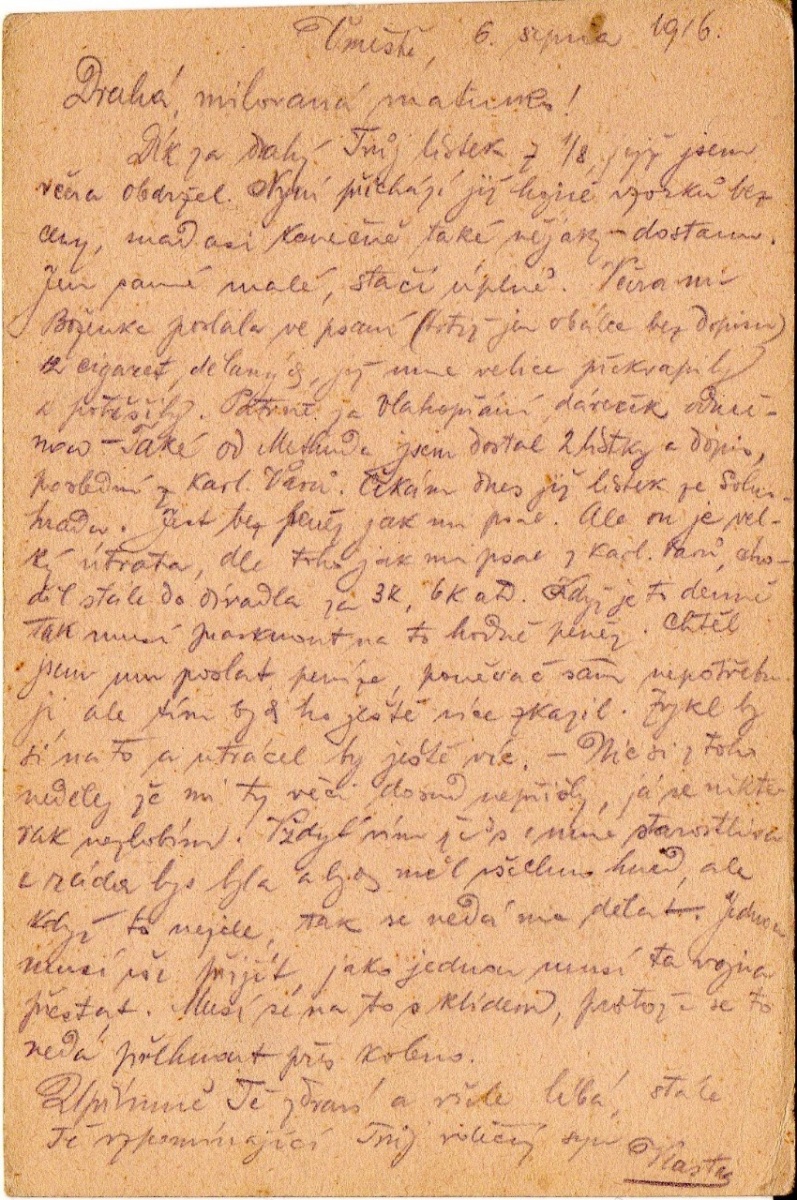 V místě, 6. srpna 1916.
Drahá, milovaná matinko!
Dík za drahý Tvůj lístek z 1/8, jejž jsem
včera obdržel. Nyní přichází již hojně vzorků bez
ceny, snad asi konečně také nějaký – dostanu.
Jen samé malé, stačí úplně. Včera mi
Boženka poslala ve psaní (totiž jen obálce bez dopisu)
12 cigaret, dělaných, jež mne velice překvapily
a potěšily. Patrně za blahopřání dáreček
– Také od jsem dostal 2 lístky a dopis,
poslední z Karl. Varů. Čekám dnes již lístek ze Solno-
hradu. Jest bez peněz jak mi psal. Ale on je vel-
ký útrata, dle toho jak mi psal z Karl. Varů, cho-
dil stále do divadla za 3K, 6K atd. Když je to denně
tak musí prasknout na to hodně peněz. Chtěl
jsem mu poslat peníze, poněvač sám nepotřebu-
ji ale tím bych ho ještě více zkazil. Zvykl by
si na to a utrácel by ještě víc. – Nic si z toho
nedělej že mi ty věci dosud nepřišly, já se nikte-
rak nezlobím. Vždyť vím že's o mne starostliva
a ráda bys byla abych měl všechno hned, ale
když to nejde, tak se nedá nic dělat. Jednou
musí vše přijít, jako jednou musí ta vojna
přestat. Musí se na to s klidem, protože se to
nedá přelhnout přes koleno.
Upřímně Tě zdraví a vřele líbá, stále
Tě vzpomínající Tvůj vděčný syn
Vlasta